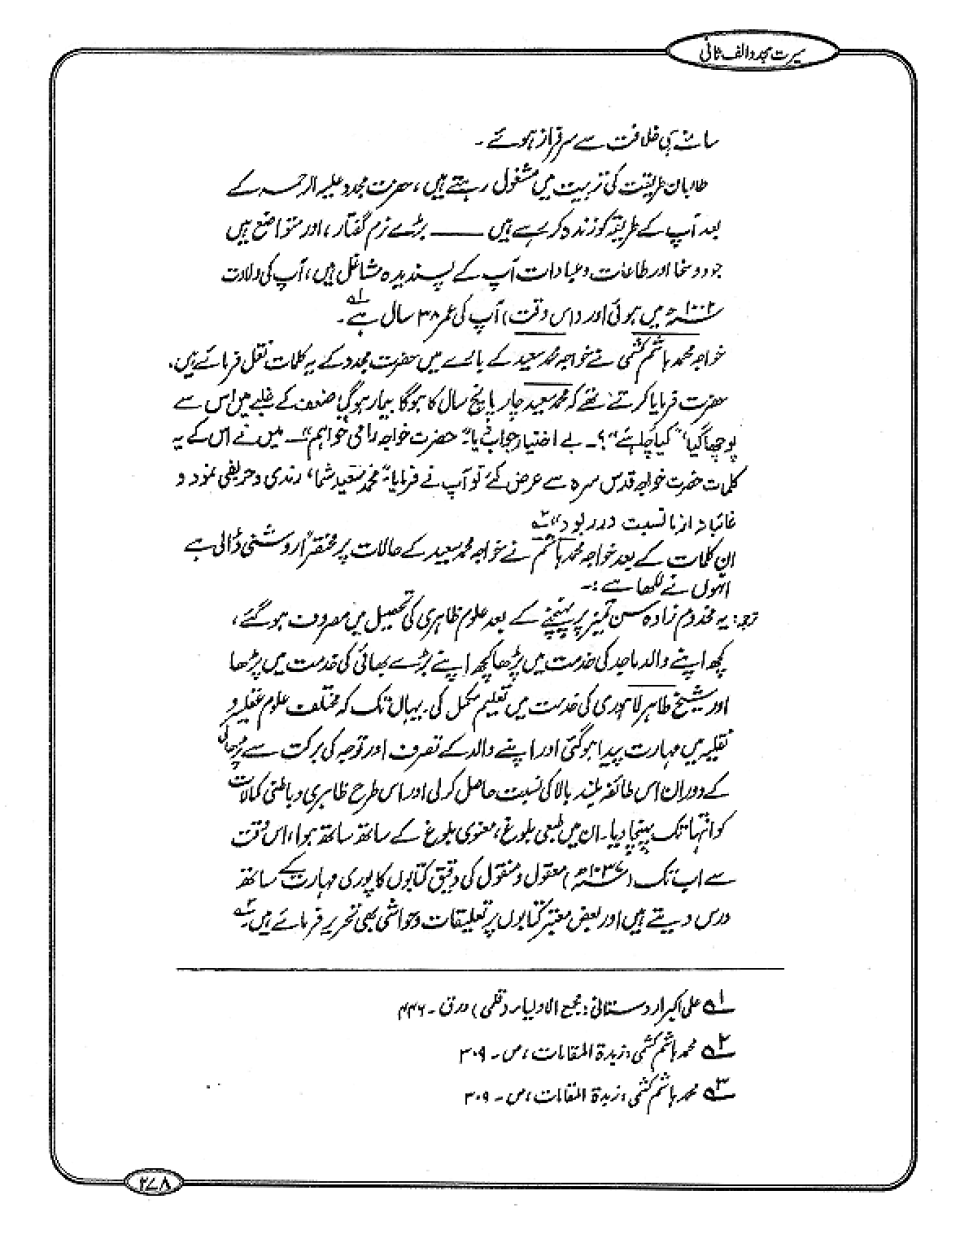 سیرت مجدد الف ثانی
ساتھ ہی خلافت سے سرفراز ہوئے۔
طالبان طریقت کی تربیت میں مشغول رہتے ہیں، حضرت مجدد علیہ الرحمہ کے
بعد آپ کے طریقہ کو زندہ کر رہے ہیں ــــــ بڑے نرم گفتار، اور متواضع ہیں
جود و سخا اور طاعات و عبادات آپ کے پسندیدہ مشاغل ہیں، آپ کی ولادت
۱۰۰۲ھ میں ہوئی اور (اس وقت) آپ کی عمر ۳۸ سال ہے۔۱ه
خواجہ محمد ہاشم کشمی نے خواجہ محمد سعید کے بارے میں حضرت مجدد کے یہ کلمات نقل فرمائے ہیں۔
حضرت فرمایا کرتے تھے کہ محمد سعید چار پانچ سال کا ہوگا بیمار ہوگیا ضعف کے غلبے میں اس سے
پوچھا گیا "کیا چاہئے"؟۔ بے اختیار جواب دیا" حضرت خواجہ رامی خواہم"۔ میں نے اس کے یہ
کلمات حضرت خواجہ قدس سرہ سے عرض کئے تو آپ نے فرمایا" محمد سعید شما، رندی و حریفی نمود و
غائبانہ از ما نسبت در ربود"۲ه
ان کلمات کے بعد خواجہ محمد ہاشم نے خواجہ محمد سعید کے حالات پر مختصراً روشنی ڈالی ہے
انہوں نے لکھا ہے:۔
ترجمہ: یہ مخدوم زادہ سن تمیز پر پہنچنے کے بعد علوم ظاہری کی تحصیل میں مصروف ہو گئے،
کچھ اپنے والد ماجد کی خدمت میں پڑھا کچھ اپنے بڑے بھائی کی خدمت میں پڑھا
اور شیخ طاہر لاہوری کی خدمت میں تعلیم مکمل کی۔ یہاں تک کہ مختلف علوم عقلیہ و
نقلیہ میں مہارت پیدا ہوگئی اور اپنے والد کے تصرف اور توجہ کی برکت سے پڑھائی
کے دوران اس طائفہ بلند بالا کی نسبت حاصل کر لی اور اس طرح ظاہری و باطنی کمالات
کو انتہا تک پہنچا دیا۔ ان میں طبعی بلوغ، معنوی بلوغ کے ساتھ ساتھ ہوا، اس وقت
سے اب تک (۱۰۳۷ھ) معقول و منقول کی دقیق کتابوں کا پوری مہارت کے ساتھ
درس دیتے ہیں اور بعض معتبر کتابوں پر تعلیقات و حواشی بھی تحریر فرمائے ہیں۳ه
۱ه علی اکبر اردستانی: مجمع الاولیاء (قلمی) ورق۔ ۴۴۶
۲ه محمد ہاشم کشمی: زبدۃ المقامات، ص۔ ۳۰۹
۳ه محمد ہاشم کشمی: زبدۃ المقامات، ص۔ ۳۰۹
۲۷۸